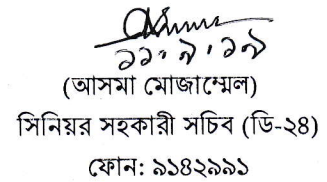 ১১.৯.১৯
(আসমা মোজাম্মেল)
সিনিয়র সহকারী সচিব (ডি-২৪)
ফোন: ৯১৪২৯৯১